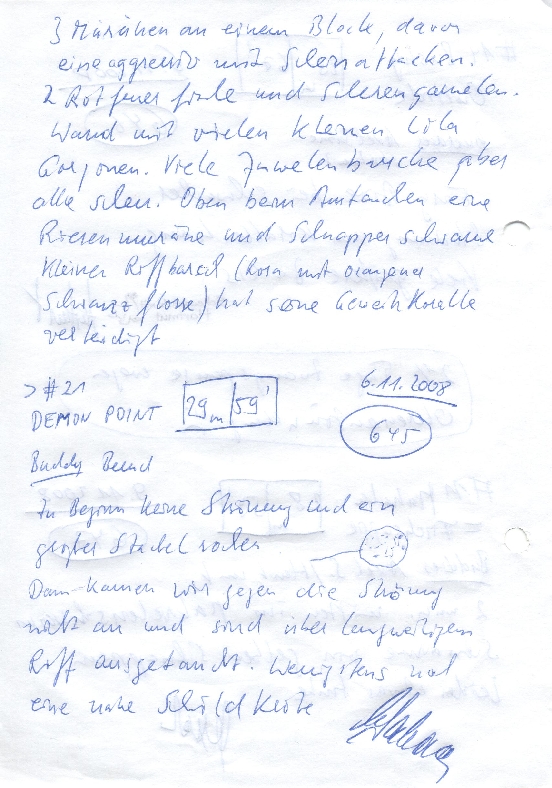 3 Muränen an einem Block, davon
eine aggressiv mit Scheinattacken.
2 Rotfeuer fische und Scherengarnelen.
Wand mit vielen kleinen lila
Gorgonen. Viele Juwelenbarsche aber
alle scheu. Oben beim Austauchen eine
Riesenmuräne und Schnapper schwarm
kleiner Riffbarsch (Rosa mit orangener
Schwanzflosse) hat seine Geweihkoralle
verteidigt
> #21
DEMON POINT 29m 59'
6.11.2008
645
Buddy Bernd
Zu Beginn keine Strömung und ein
großer Stachelrochen
Dann kamen wir gegen die Strömung
nicht an und sind über langweiligem
Riff ausgetaucht Wenigstens noch
eine nahe Schildkröte